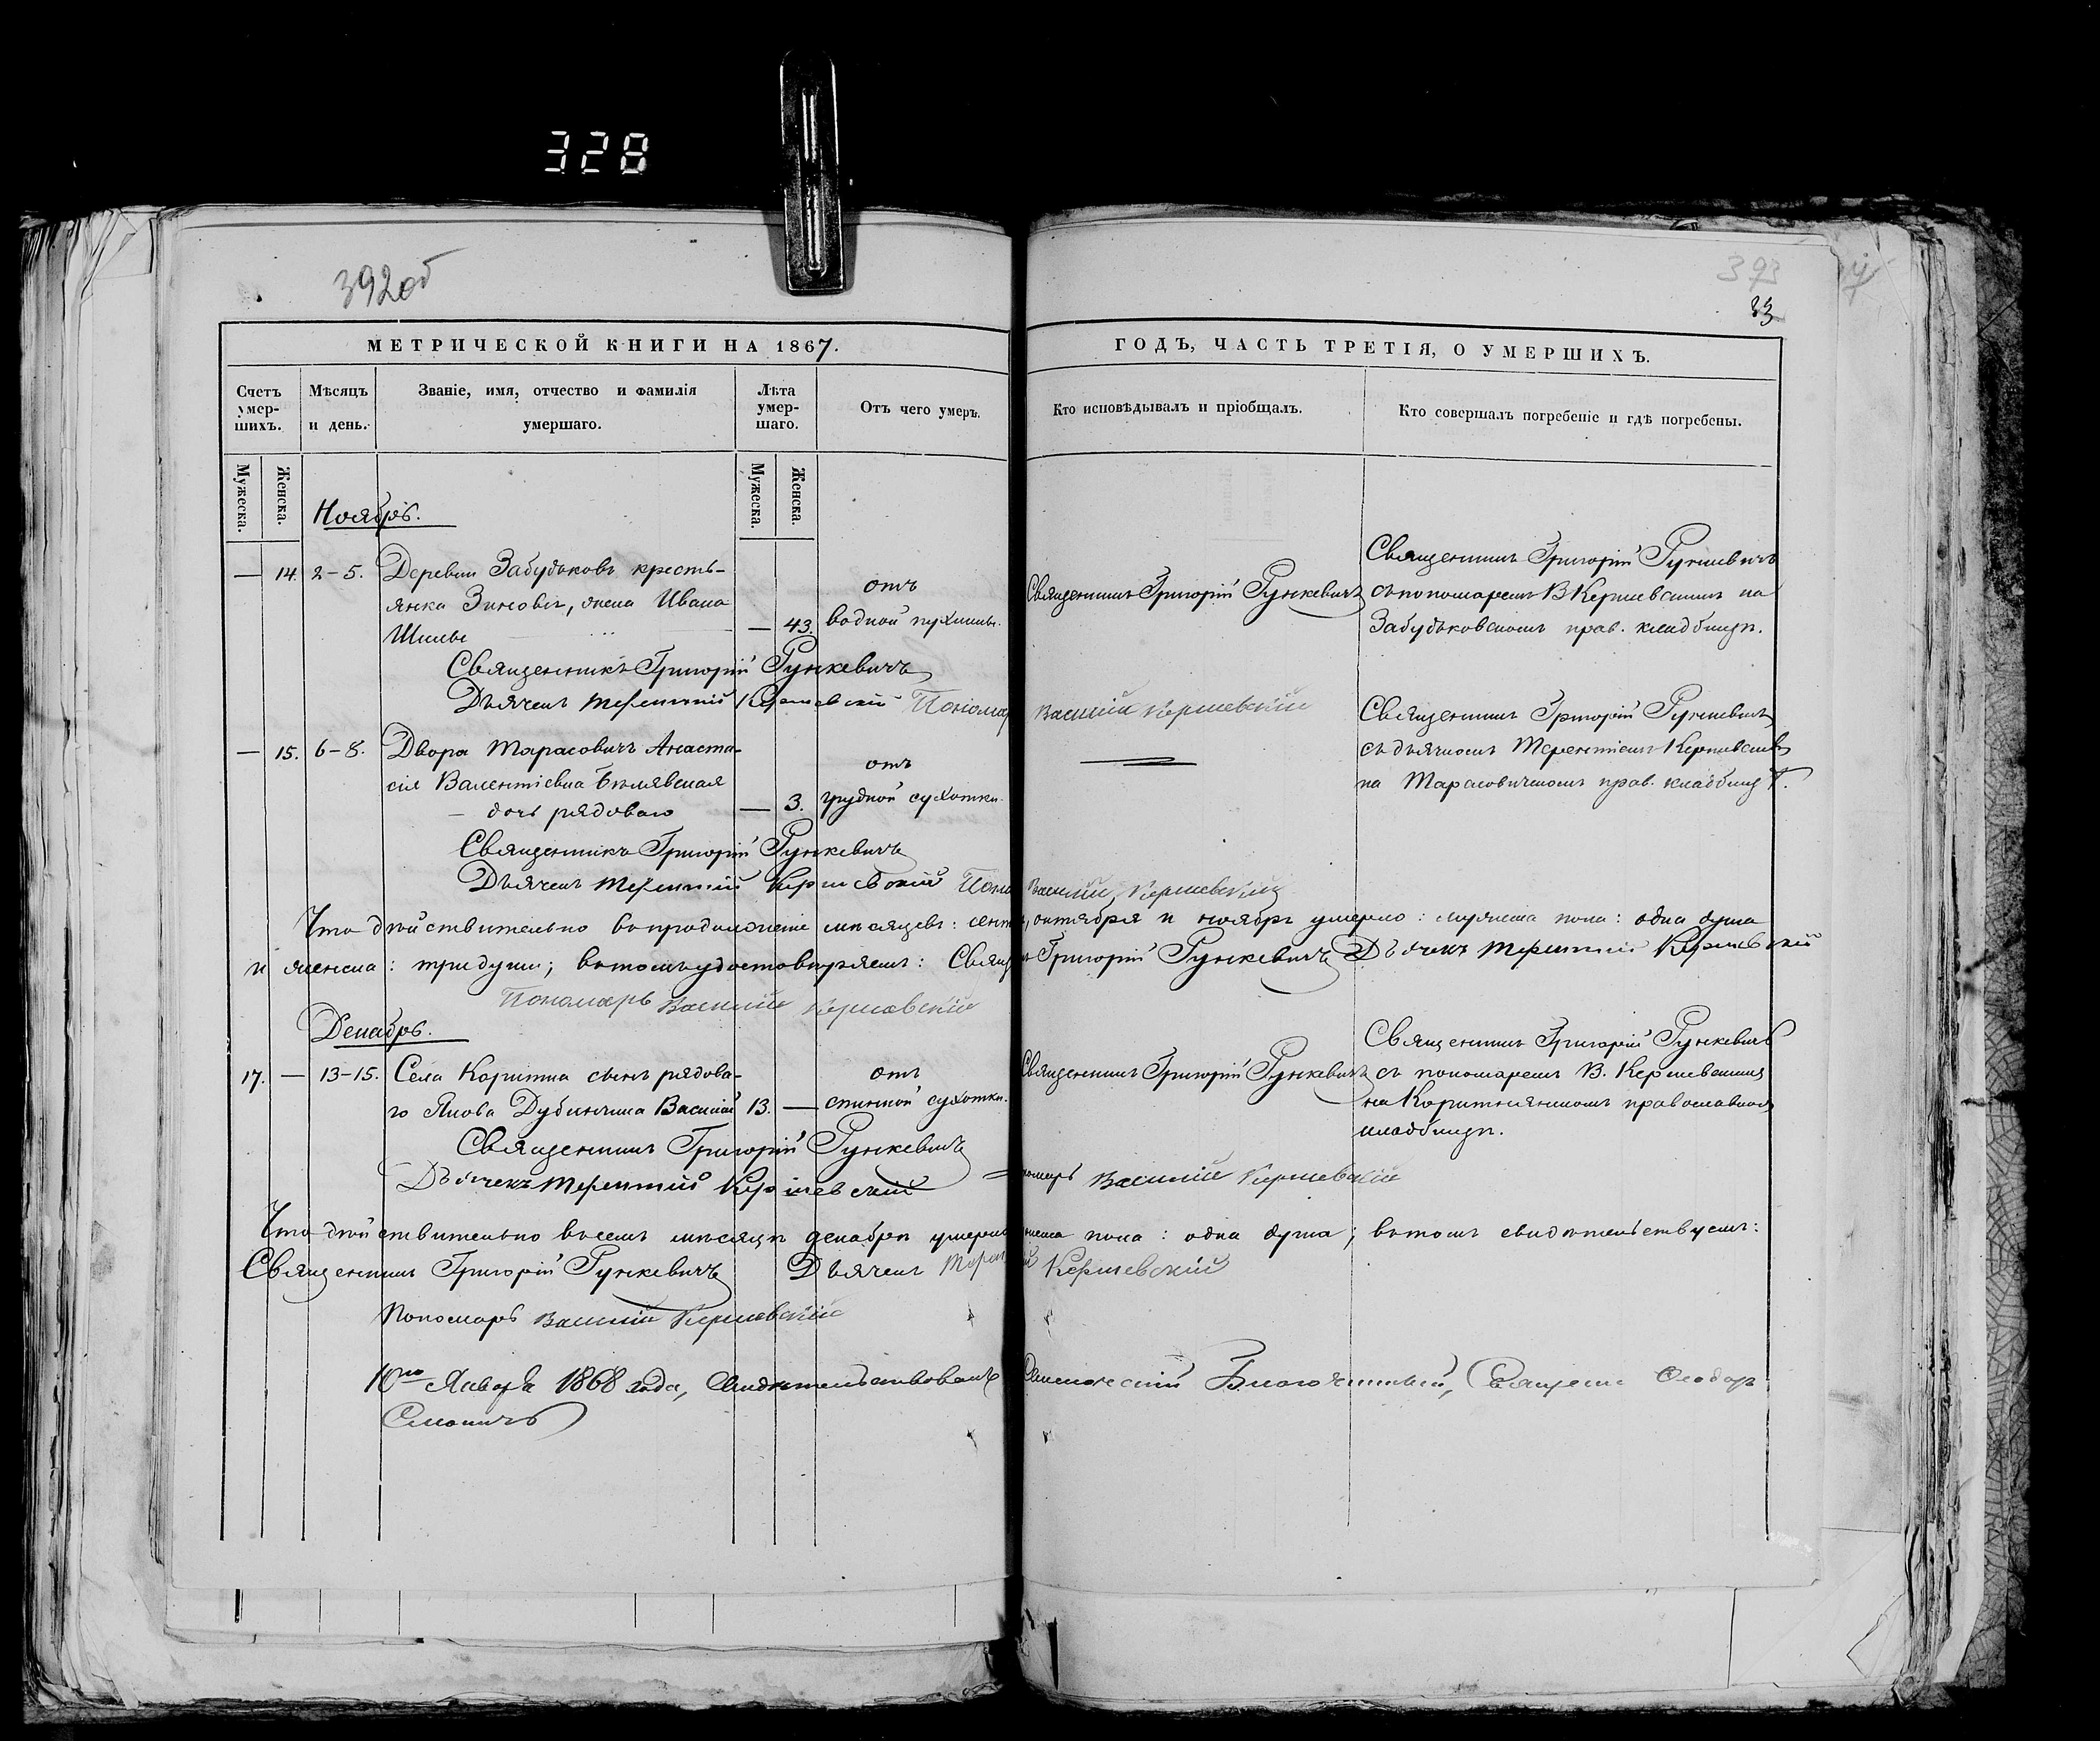 328
392об
393
83
МЕТРИЧЕСКОЙ КНИГИ НА 1867.
ГОДЪ, ЧАСТЬ ТРЕТІЯ, О УМЕРШИХЪ.
Счетъ умер-шихъ.
Мѣсяцъ и день.
Званіе, имя, отчество и фамилія умершаго.
Лѣта умер-шаго.
Отъ чего умеръ.
Кто исповѣдывалъ и пріобщалъ.
Кто совершалъ погребеніе и гдѣ погребены.
Мужеска.
Женска.
Мужеска.
Женска.
Ноябрь.
— 14. 2-5. Деревни Забудьковъ кресть-
янка Зиновія, жена Ивана
— 43.
отъ
водной пухлины.
Священникъ Григорій Рункевичъ
Священникъ Григорій Рункевичъ
съ пономаремъ В Кернвскимъ на
Забудьковскомъ прав. кладбищѣ.
Священникъ Григорій Рункевичъ
Дьячекъ Терентій
Пономар Василій
— 15. 6-8. Двора Тарасовичъ Анаста-
сія Валентіевна Бѣлявская
— дочь рядоваго
— 3.
отъ
грудной сухотки.
Священникъ Григорій Рункевичъ
съ дьячкомъ Терентіемъ
на Тарасовичскомъ прав. кладбищѣ.
Священникъ Григорій Рункевичъ
Дьячекъ Терентій
Поно Василій
Что дѣйствительно впродолженіе мѣсяцевъ: сент, октября и ноября умерло: мужеска пола: одна душа
и женска: три души; въ томъ удостовѣряемъ: Свящ ъ Григорій Рункевичъ Дьячекъ Терентій
Пономарь Василій
Декабрь.
17. — 13-15. Села Корытна сынъ рядова-
го Якова Дубинчика Василій 13. —
отъ
спинной сухотки.
Священникъ Григорій Рункевичъ
Священникъ Григорій Рункевичъ
съ пономаремъ В.
на Корытнянскомъ православномъ
кладбищѣ.
Священникъ Григорій Рункевичъ
Дьячекъ Терентій
номарь Василій
Что дѣйствительно въ семъ мѣсяцѣ декабрѣ умерло жеска пола: одна душа; въ томъ свидѣтельствуемъ:
Священникъ Григорій Рункевичъ Дьячекъ Терен й
Пономарь Василій
10го Января 1868 года, Свидѣтельствовалъ Благочинный, Священ. Ѳеодоръ